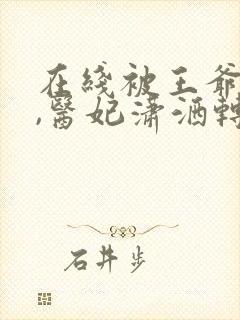 在线被王爷
,医妃潇洒转
石井步